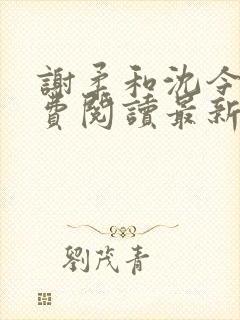 謝柔和沈令
費閱讀最新
劉茂青